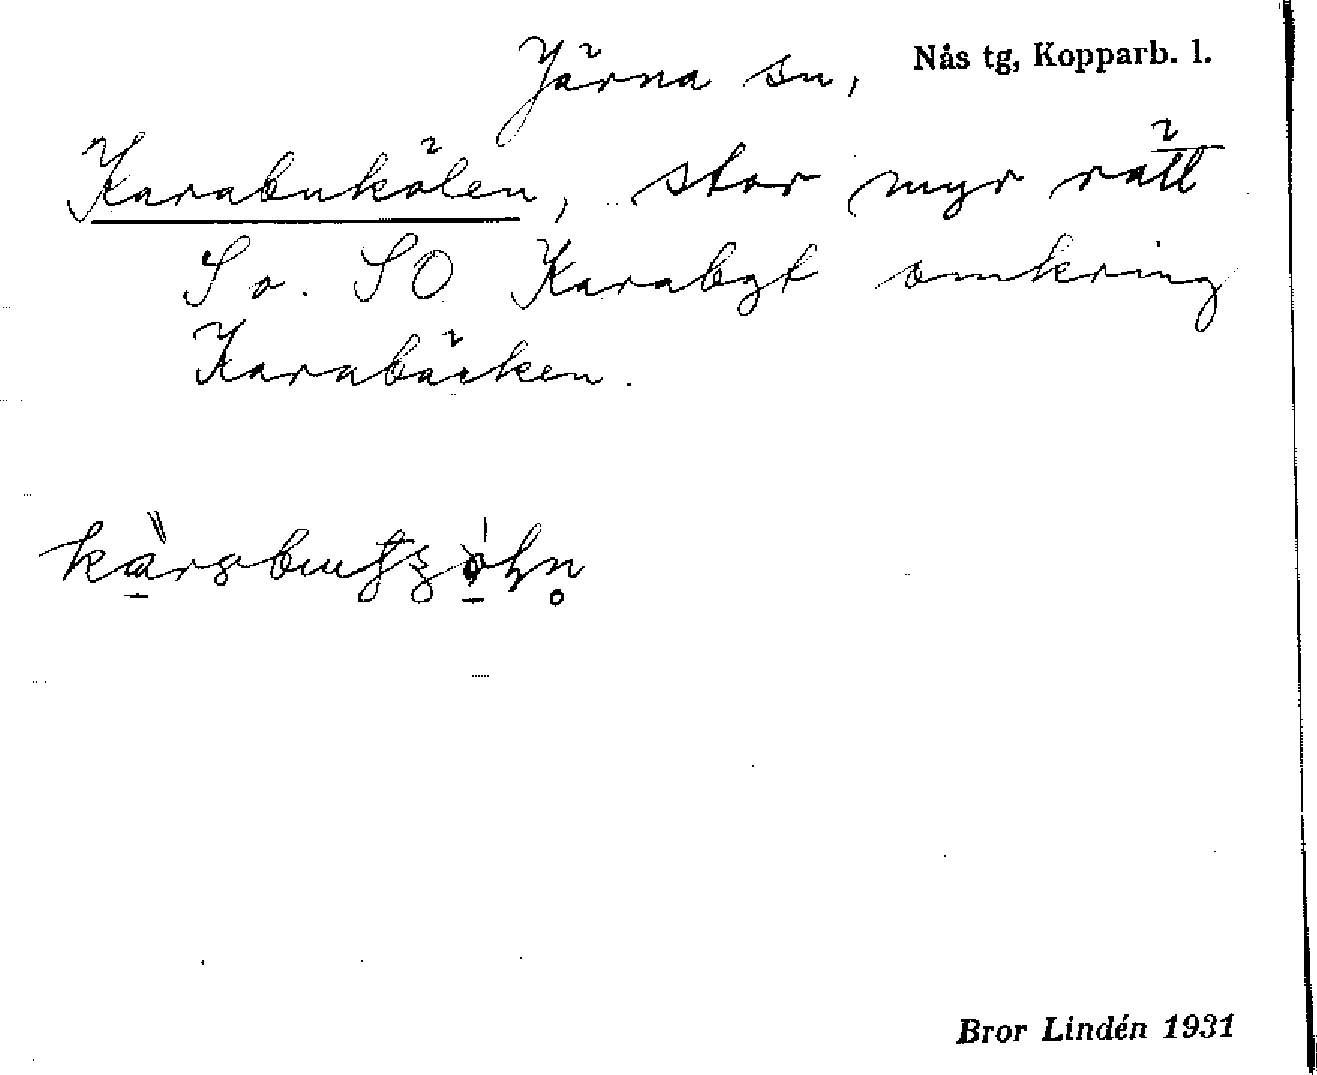 Järna sn, Nås tg, Kopparb. l.
Karabukölen, stor myr rätt
So. SO Karabgt omkring
Karabäcken.
Bror Lindén 1931